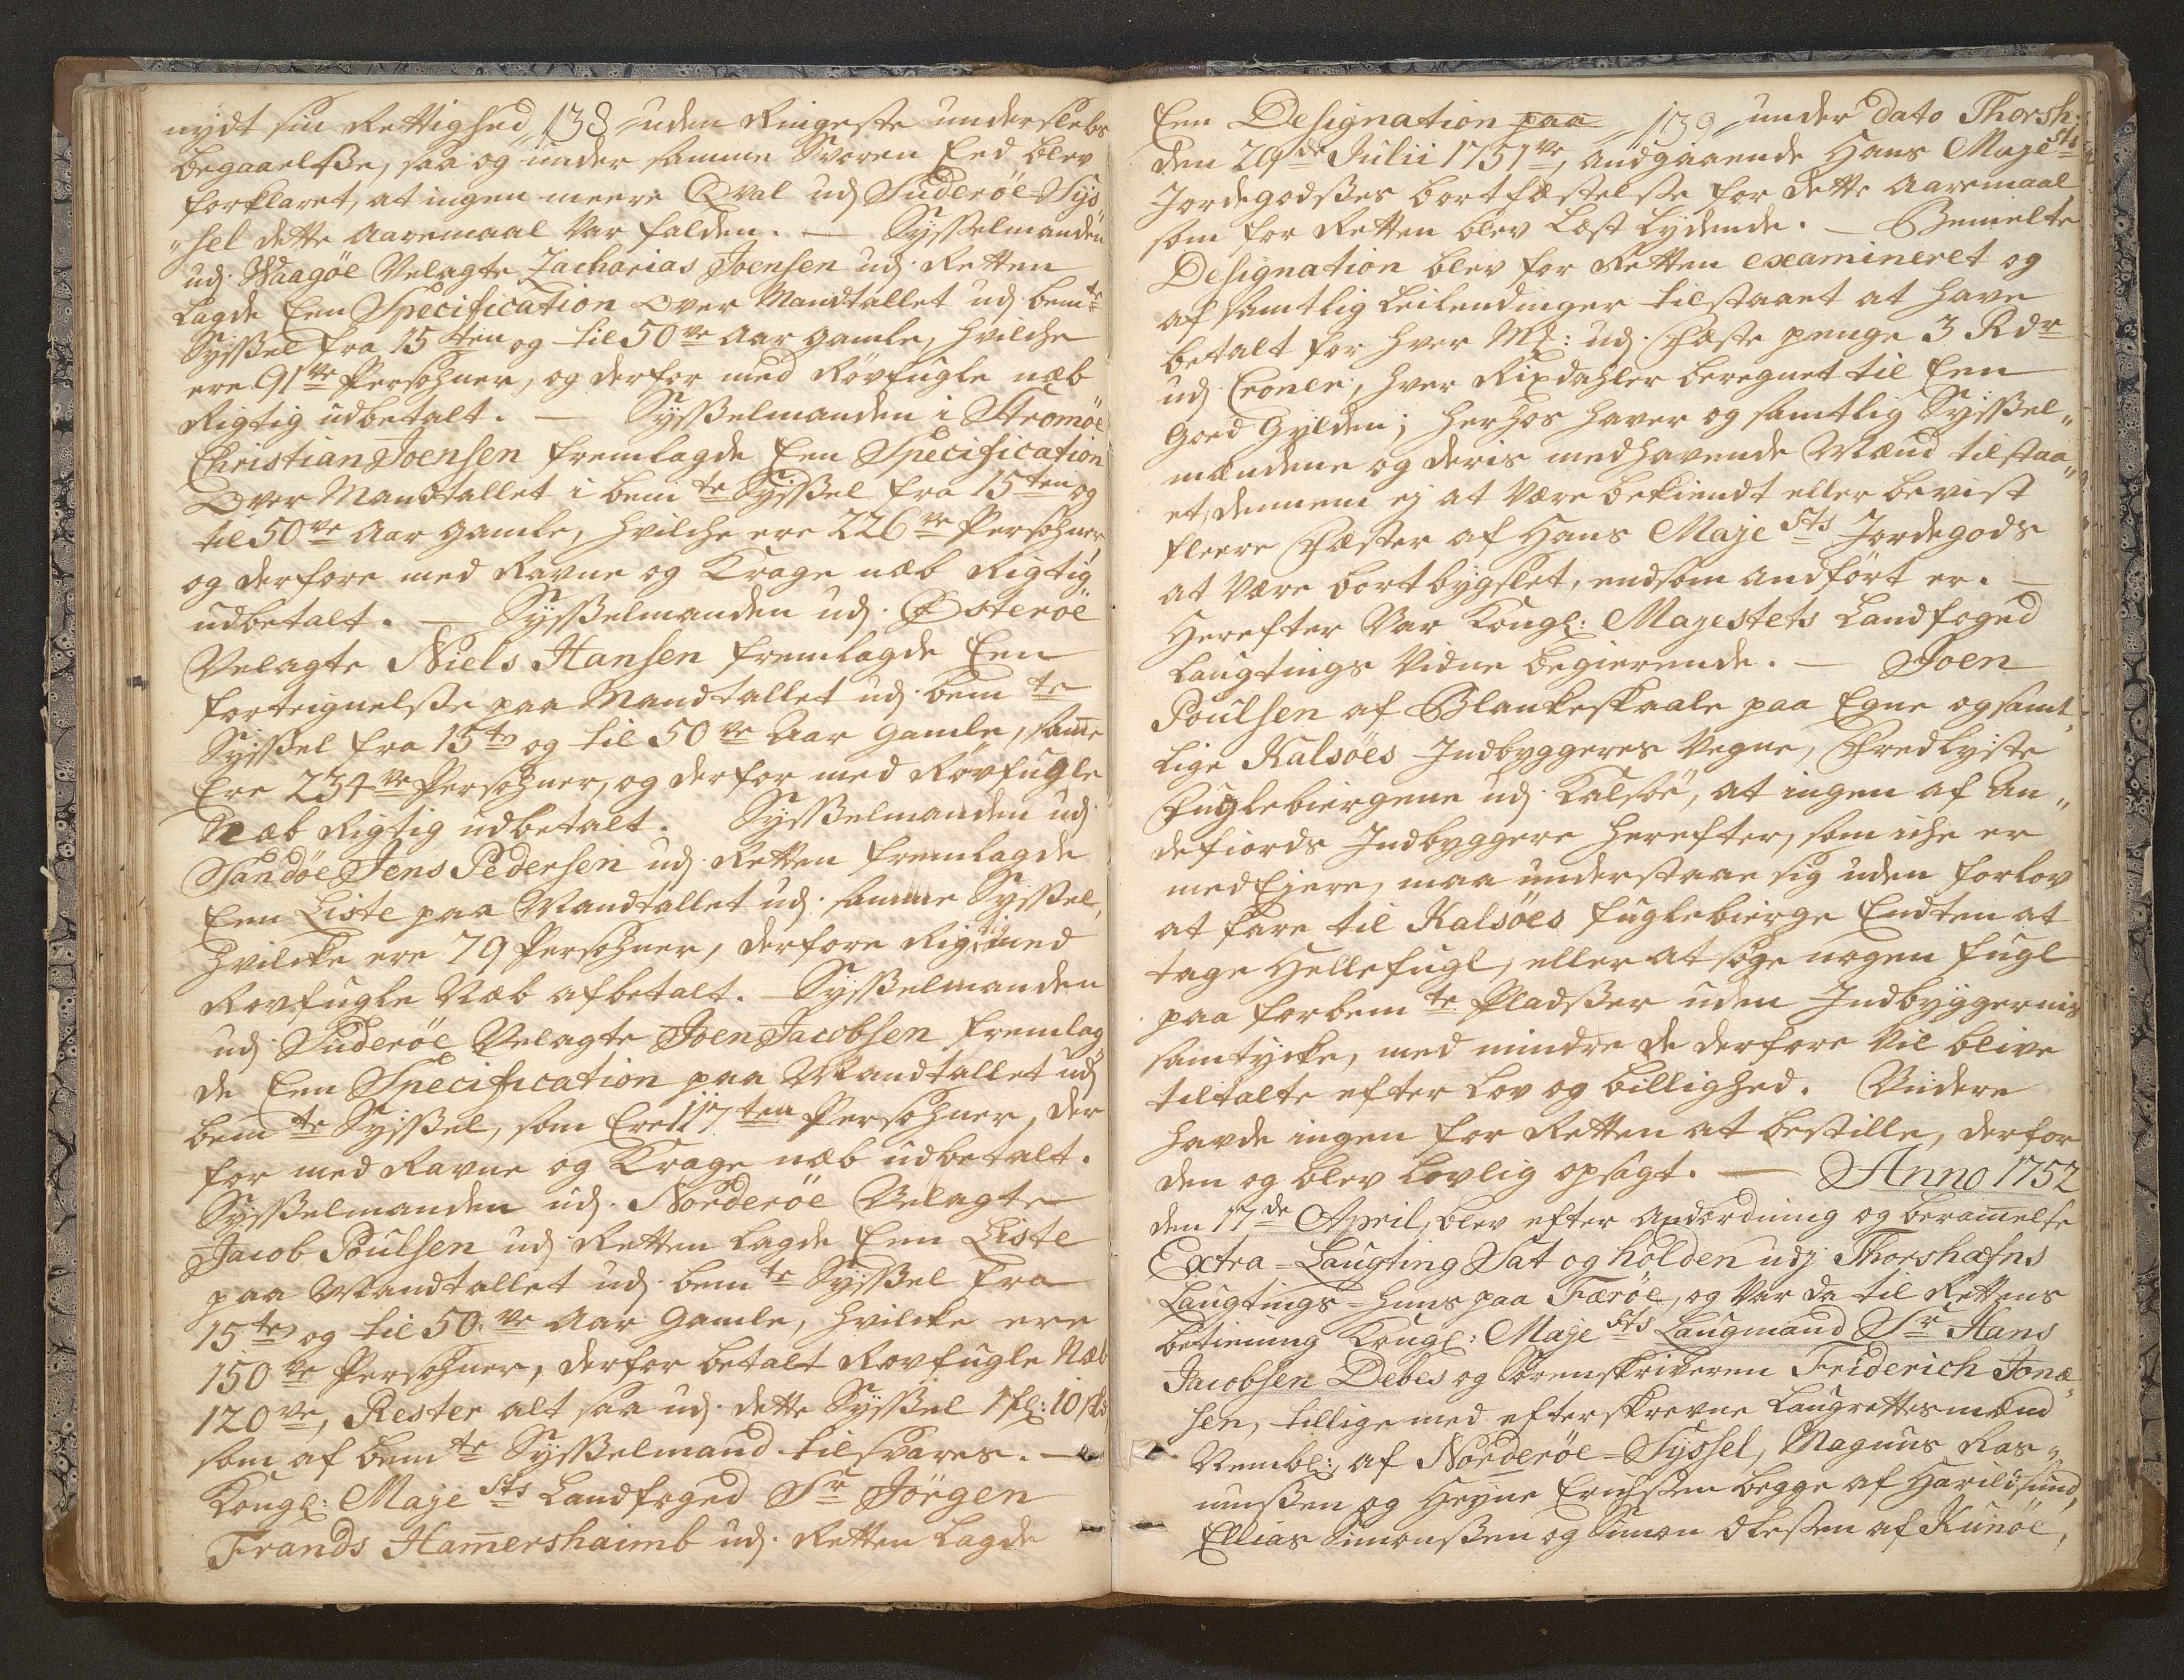 nydt sin Rettighed, 138 uden Ringeste underslebs
begaaelsse, saa og under samme Svoren Eed blev
forklaret, at ingen meere Qval udj Suderöe Sys„
„sel dette Aaremaal var falden. — Sysselmanden
udj Waagöe Velagte Zacharias Joensen udj Retten
Lagde Een Specification over Mandtallet udj bemte
Sysßel fra 15ten og til 50ve Aar gamle, hvilche
ere 91ve Persohner, og derfor med Rövfugle næb
Rigtig udbetalt. — Sysßelmanden i Strömöe
Christian Joensen fremlagde Een Specification
Over Mandtallet i bemte Sysßel fra 15ten og
til 50ve Aar gamle, hvilche ere 226ve Persohner,
og derfore med Ravne og Krage næb Rigtig
udbetalt. — Sysßelmanden udj Österöe
Velagte Niels Hansen fremlagde Een
forteignelsse paa Mandtallet udj bemte
Sysßel fra 15te og til 50ve Aar gamle, sam̅e
Ere 234ve Persohner, og derfor med Rövfugle
Næb Rigtig udbetalt. Sysßelmanden udj
Sandöe Jens Pedersen udj Retten fremlagde
Een Liste paa Mandtallet udj samme Sysßel,
hvilcke ere 79 Persohner, derfore Rigtig med
Rovfugle Næb afbetalt. — Sysßelmanden
udj Suderöe Velagte Joen Jacobsen fremlag„
de Een Specification paa Mandtallet udj
bemte Sysßel, som Ere 117ten Persohner, der
for med Ravne og Krage næb udbetalt.
Sysßelmanden udj Norderöe Velagte
Jacob Poulsen udj Retten lagde Een Liste
paa Mandtallet udj bemte Sysßel fra
15te og til 50ve Aar Gamle, hvilcke ere
150ve Persohner, derfor betalt Rovfugle Næb
120ve, Rester alt saa udj dette Sysßel 1 fl: 10 sk
som af bemte Sysßelmand tilsvares. —
Kongl: Majesͭts Landfoged Sr Jörgen
Frands Ham̅ershaimb udj Retten lagde
Een Designation paa 139 under dato Thorsh:
den 29de Julii 1751ve, andgaaende Hans Majests
Jordegodsses bortfæstelsse for dette Aaremaal
som for Retten blev Læst Lydende. — Bemelte
Designation blev for Retten examineret og
af samtlig Leilendinger tilstaaet at have
betalt for hver Mk: udj Fæste penge 3 Rdr
udj Croner, hver Rixdahler beregnet til Een
Goed Gylden; herhos haver og samtlig Sysßel„
mændene og deris medhavende Mænd tilstaa„
et, dennem ej at være bekiendt eller bevist
fleere Fæster af Hans Majests Jordegods
at være bortbygslet, end som andfört er. —
Herefter var Kongl: Majestets Landfoged
Laugtings Vidne begierende. — Joen
Poulsen af Blankeskaale paa Egne og samt„
lige Kalsöes Indbyggeres Vegne, Fredlyste
Fuglebiergene udj Kalsöe, at ingen af An„
defiords Indbyggere herefter, som iche er
med Ejere, maa understaae sig uden forlov
at fare til Kalsöes fuglebierge Endten at
tage Hellefugl, eller at söge nogen fugl
paa forbemte Pladsser uden Indbyggernis
samtycke, med mindre de derfore vil blive
tiltalte efter Lov og billighed. Videre
havde ingen for Retten at bestille, derfor
den og blev Lovlig opsagt. — Anno 1752
den 17de April, blev efter Andordning og beram̅else
Extra-Laugting Sat og holden udj Thorshafns
Laugtings-huus paa Færöe, og var da til Rettens
betiening Kongl: Majests Laugmand Sr Hans
Jacobsen Debes og Sorenskriveren Friderich Jonæ„
sen, tillige med efterskrevne Laugrettesmænd
Nembl: af Norderöe-Syssel, Magnus Ras„
musßen og Heyne Erichsßen begge af Harildsund,
Ellias Simonsßen og Simon Olesßen af Kunöe,